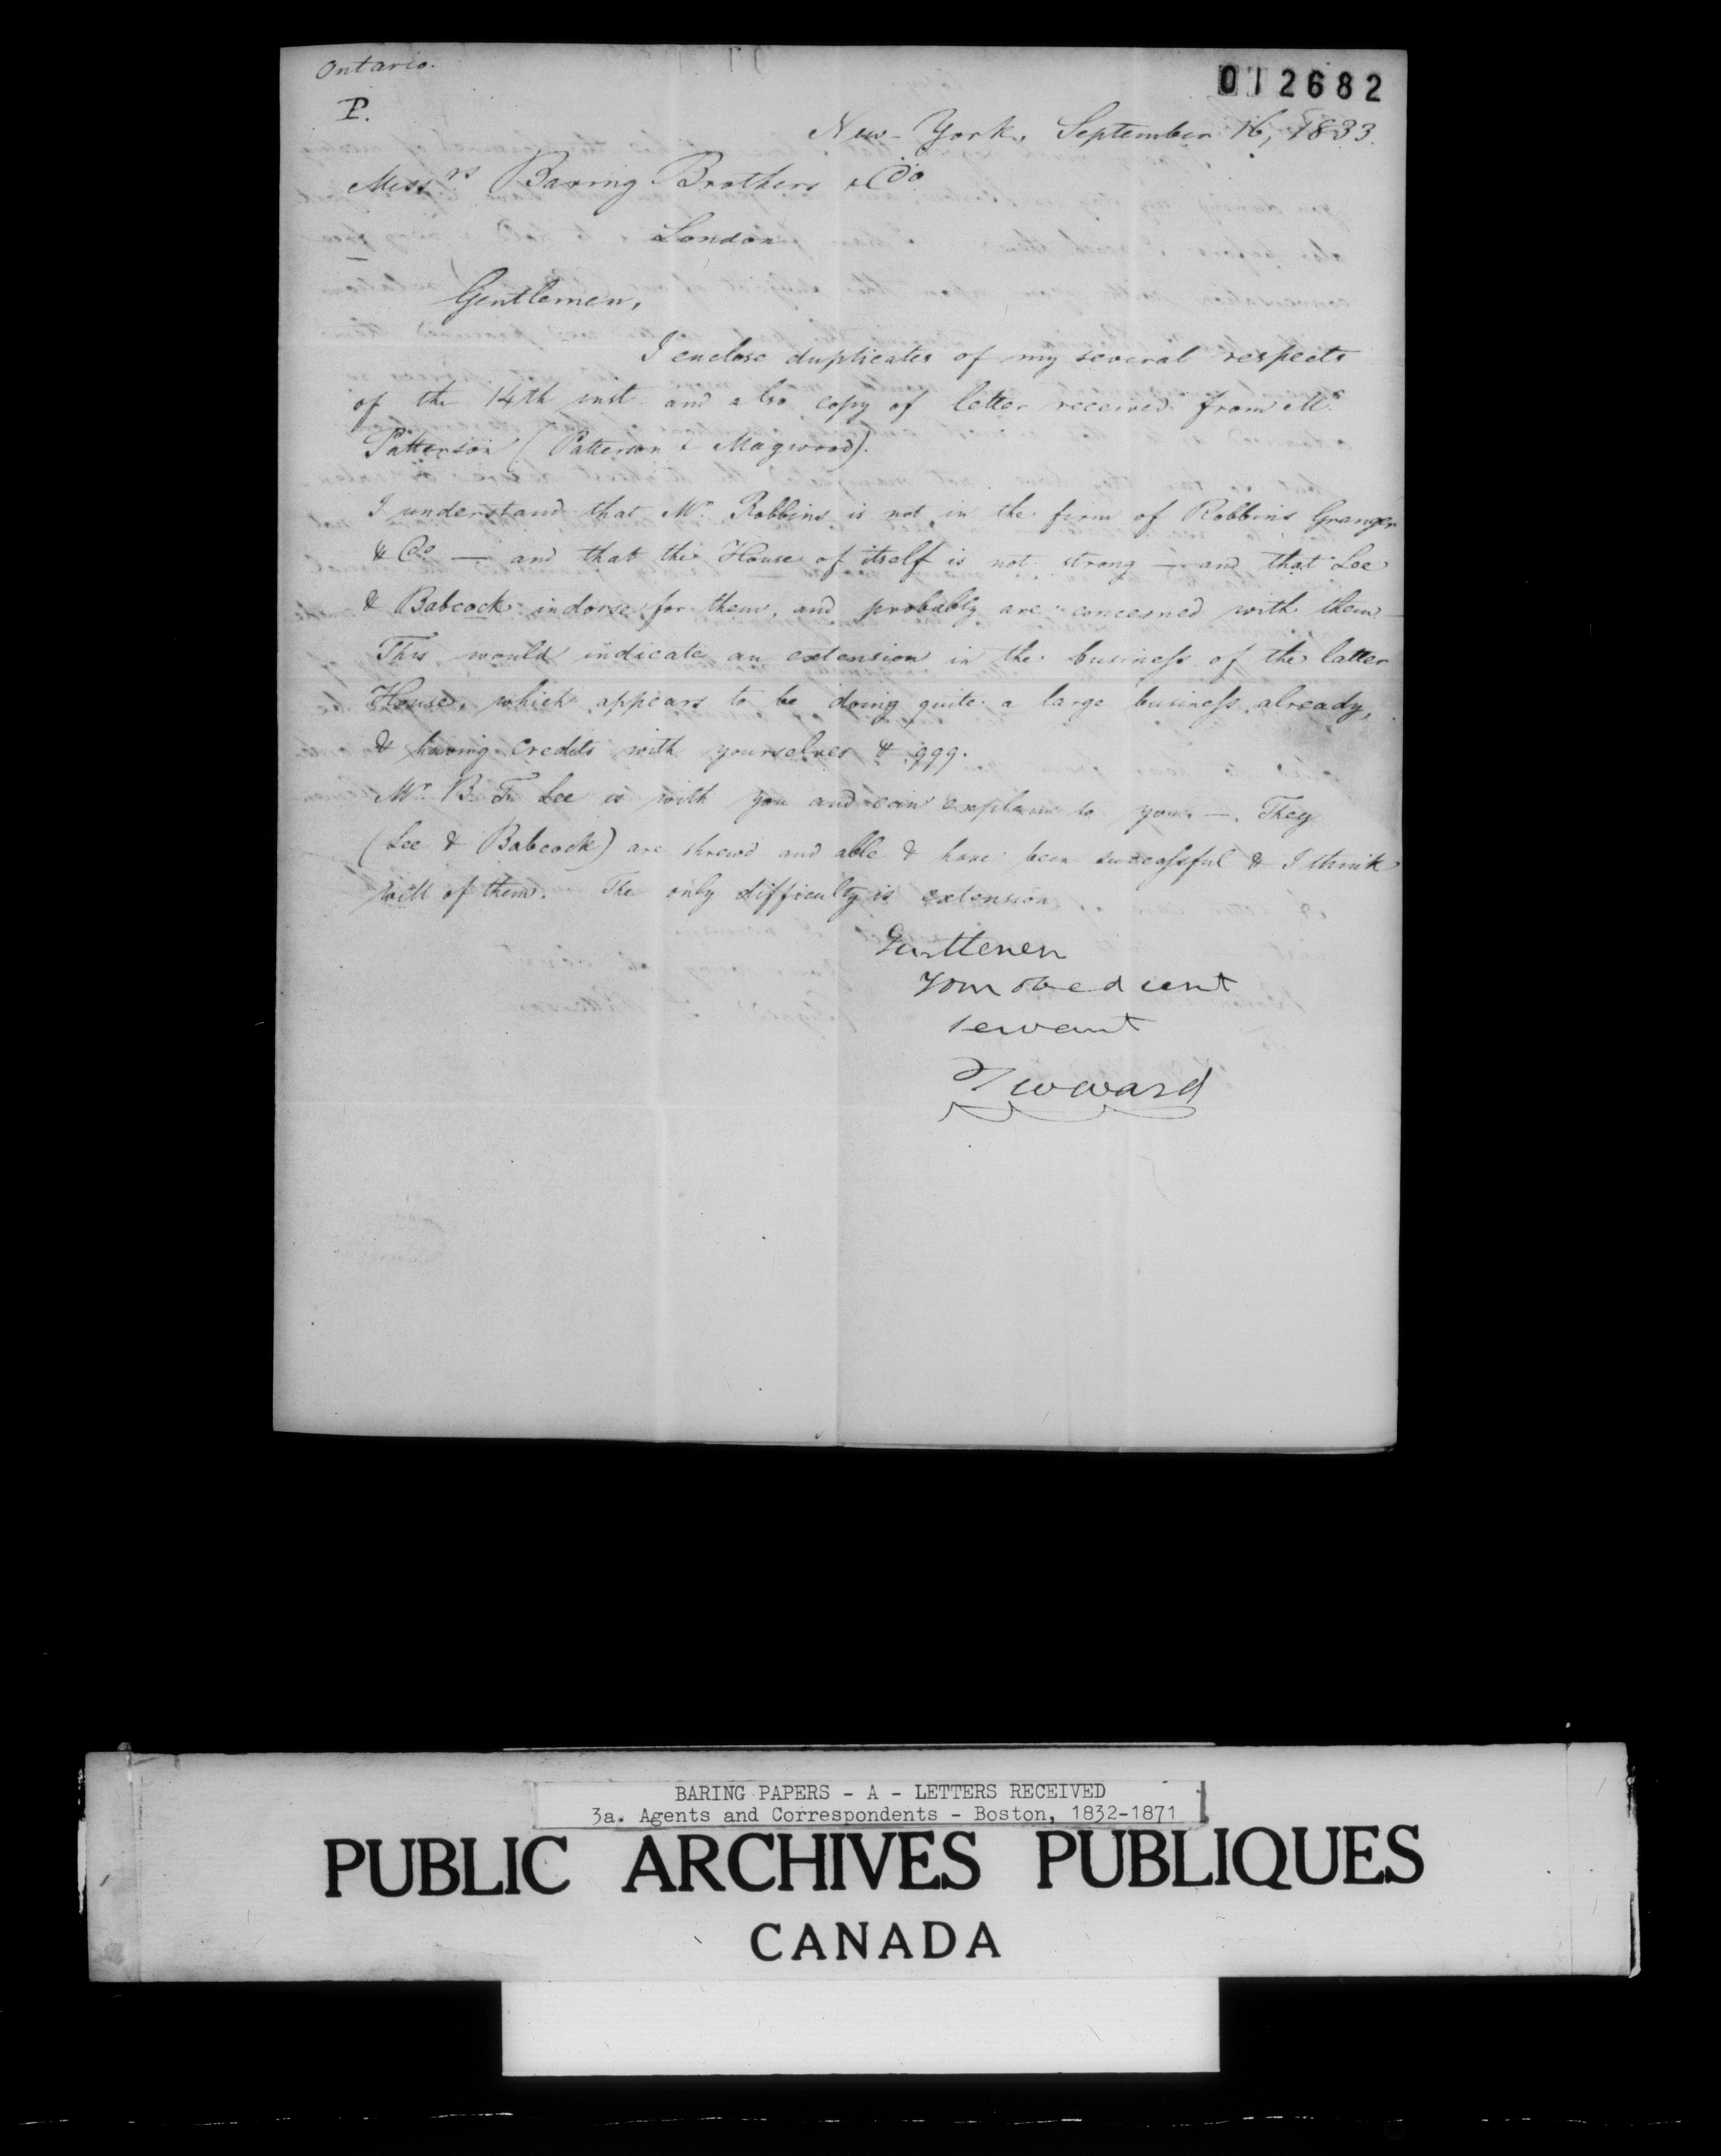 Ontario.
012682
P.
New-York, September 16, 1833.
Mess.rs Baring Brothers & Co
London
Gentlemen,
I enclose duplicates of my several respects
of the 14th inst. and also copy of letter received from Mr
Patterson (Patterson & Magwood).
I understand that Mr. Robbins is not in the firm of Robbins Granger
& Co — and that the House of itself is not strong — and that Lee
& Babcock indorse for them, and probably are concerned with them —
This would indicate an extension in the business of the latter
House, which appears to be doing quite a large business already,
& having Credits with yourselves & ggg.
Mr. B. F. Lee is with you and can explain to you. — They
(Lee & Babcock) are shrewd and able & have been successful & I think
well of them. The only difficulty is extension
Gentlemen
Your obedient
servant
T W Ward
BARING PAPERS - A - LETTERS RECEIVED
3a. Agents and Correspondents - Boston, 1832-1871
PUBLIC ARCHIVES PUBLIQUES
CANADA